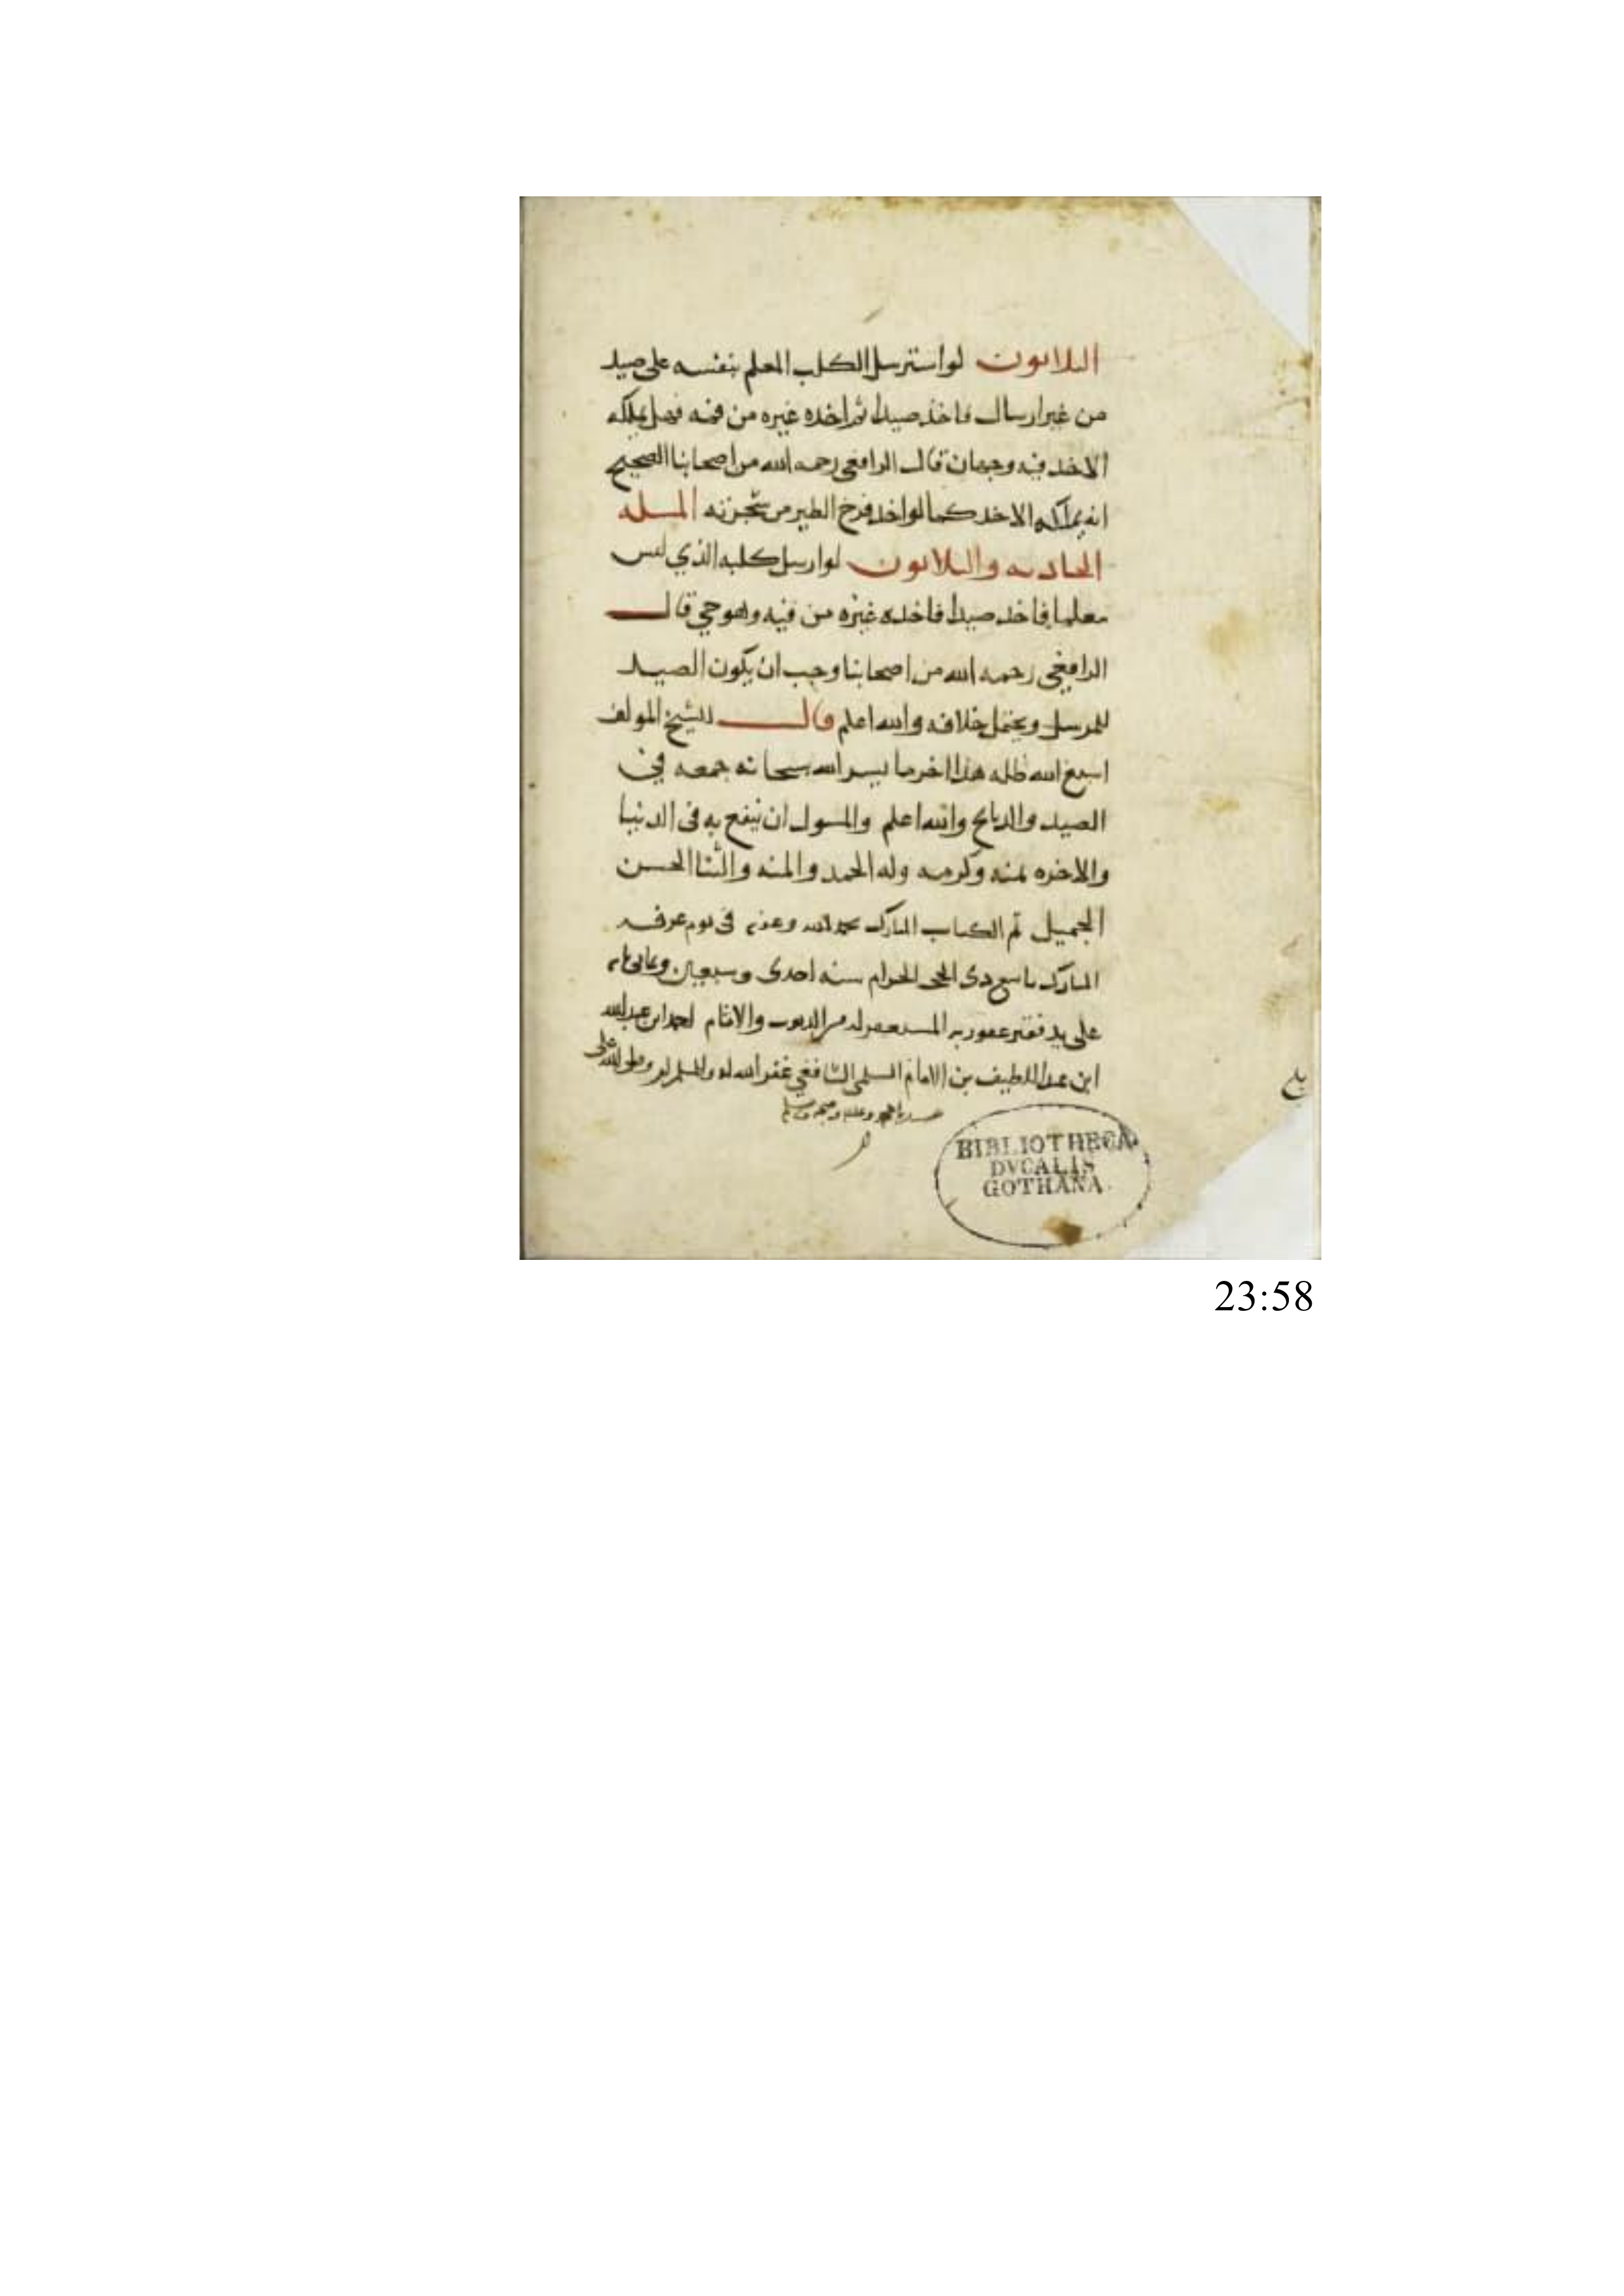 الثلاثون لو استرسل الكلب المعلم بنفسه على صيد
من غير ارسال فاخذ صيدا ثم اخذه غيره من فمه فهل يملكه
الاخذ فيه وجهان قال الرافعي رحمه الله من اصحابنا الصحيح
انه يملكه الاخذ كما لو اخذ فرخ الطير من شجرته المسله
الحاديه والثلاثون لو ارسل كلبه الذي ليس
معلما فاخذ صيدا فاخذه غيره من فيه وهو حي قال
الرافعي رحمه الله من اصحابنا وجب ان يكون الصيد
للمرسل ويحتمل خلافه والله اعلم قال الشيخ المولف
اسبغ الله ظله هذا اخر ما يسر الله سبحانه جمعه في
الصيد والذبايح والله اعلم والمسول ان ينفع به في الدنيا
والاخره بمنه وكرمه وله الحمد والمنه والثنا الحسن
الجميل تم الكتاب المبارك بحمد الله وعونه في يوم عرفه
المبارك تاسع ذى الحجه الحرام سنه احدى وسبعين وثمانمايه
على يد فقير عفو ربه المستغفر له من الذنوب والاثام احمد ابن عبد الله
ابن عبد اللطيف بن الامام السلمى الشافعي غفر الله له وللمسلمين وصلى الله على
وصحبه وسلم
BIBLIOTHECA
DVCALIS
GOTHANA
23:58